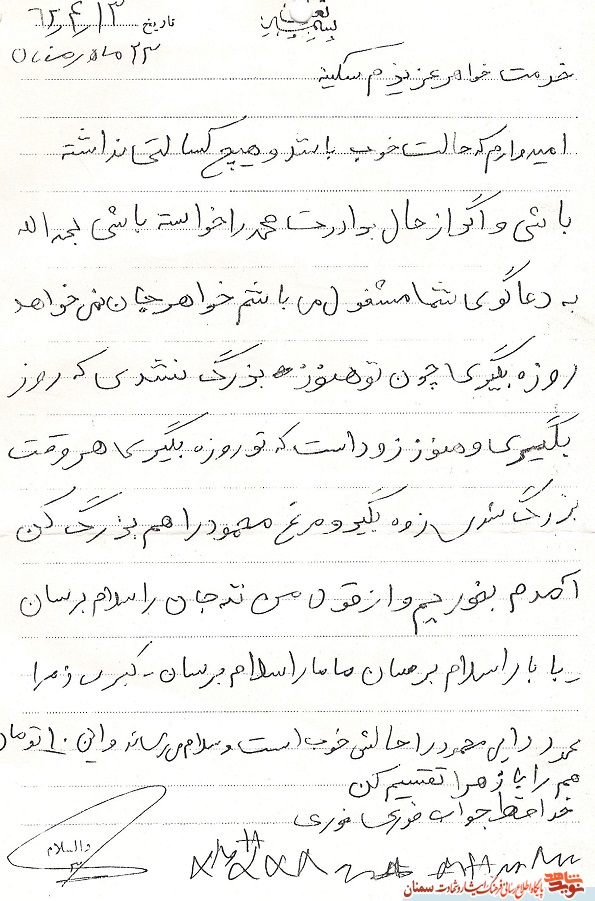 بسمه تعالی
تاریخ ۶۲/۴/۱۳
۲۳ ماه رمضان
خدمت خواهر عزیزم سکینه
امیدوارم که حالت خوب باشد و هیچ کسالتی نداشته
باشی و اگر از حال برادرت محمد را خواسته باشی بحمدالله
به دعاگوی شما مشغول می باشم خواهر جان نمی خواهد
روزه بگیری چون تو هنوز بزرگ نشدی که روز
بگیری و هنوز زود است که تو روزه بگیری هر وقت
بزرگ شدی زوه بگیر و مرغ محمود را هم بزرگ کن
آمدم بخوریم و از قول من ننه جان را سلام برسان
بابا را سلام برسان ماما را سلام برسان - کبری زهرا
محمود دایی محمود را حالش خوب است و سلام می رساند و این ۱۰ تومان
هم را با زهرا تقسیم کن
خداحافظ جواب فوری فوری
والسلام
نوید شاهد
پایگاه اطلاع رسانی فرهنگ ایثار و شهادت سمنان